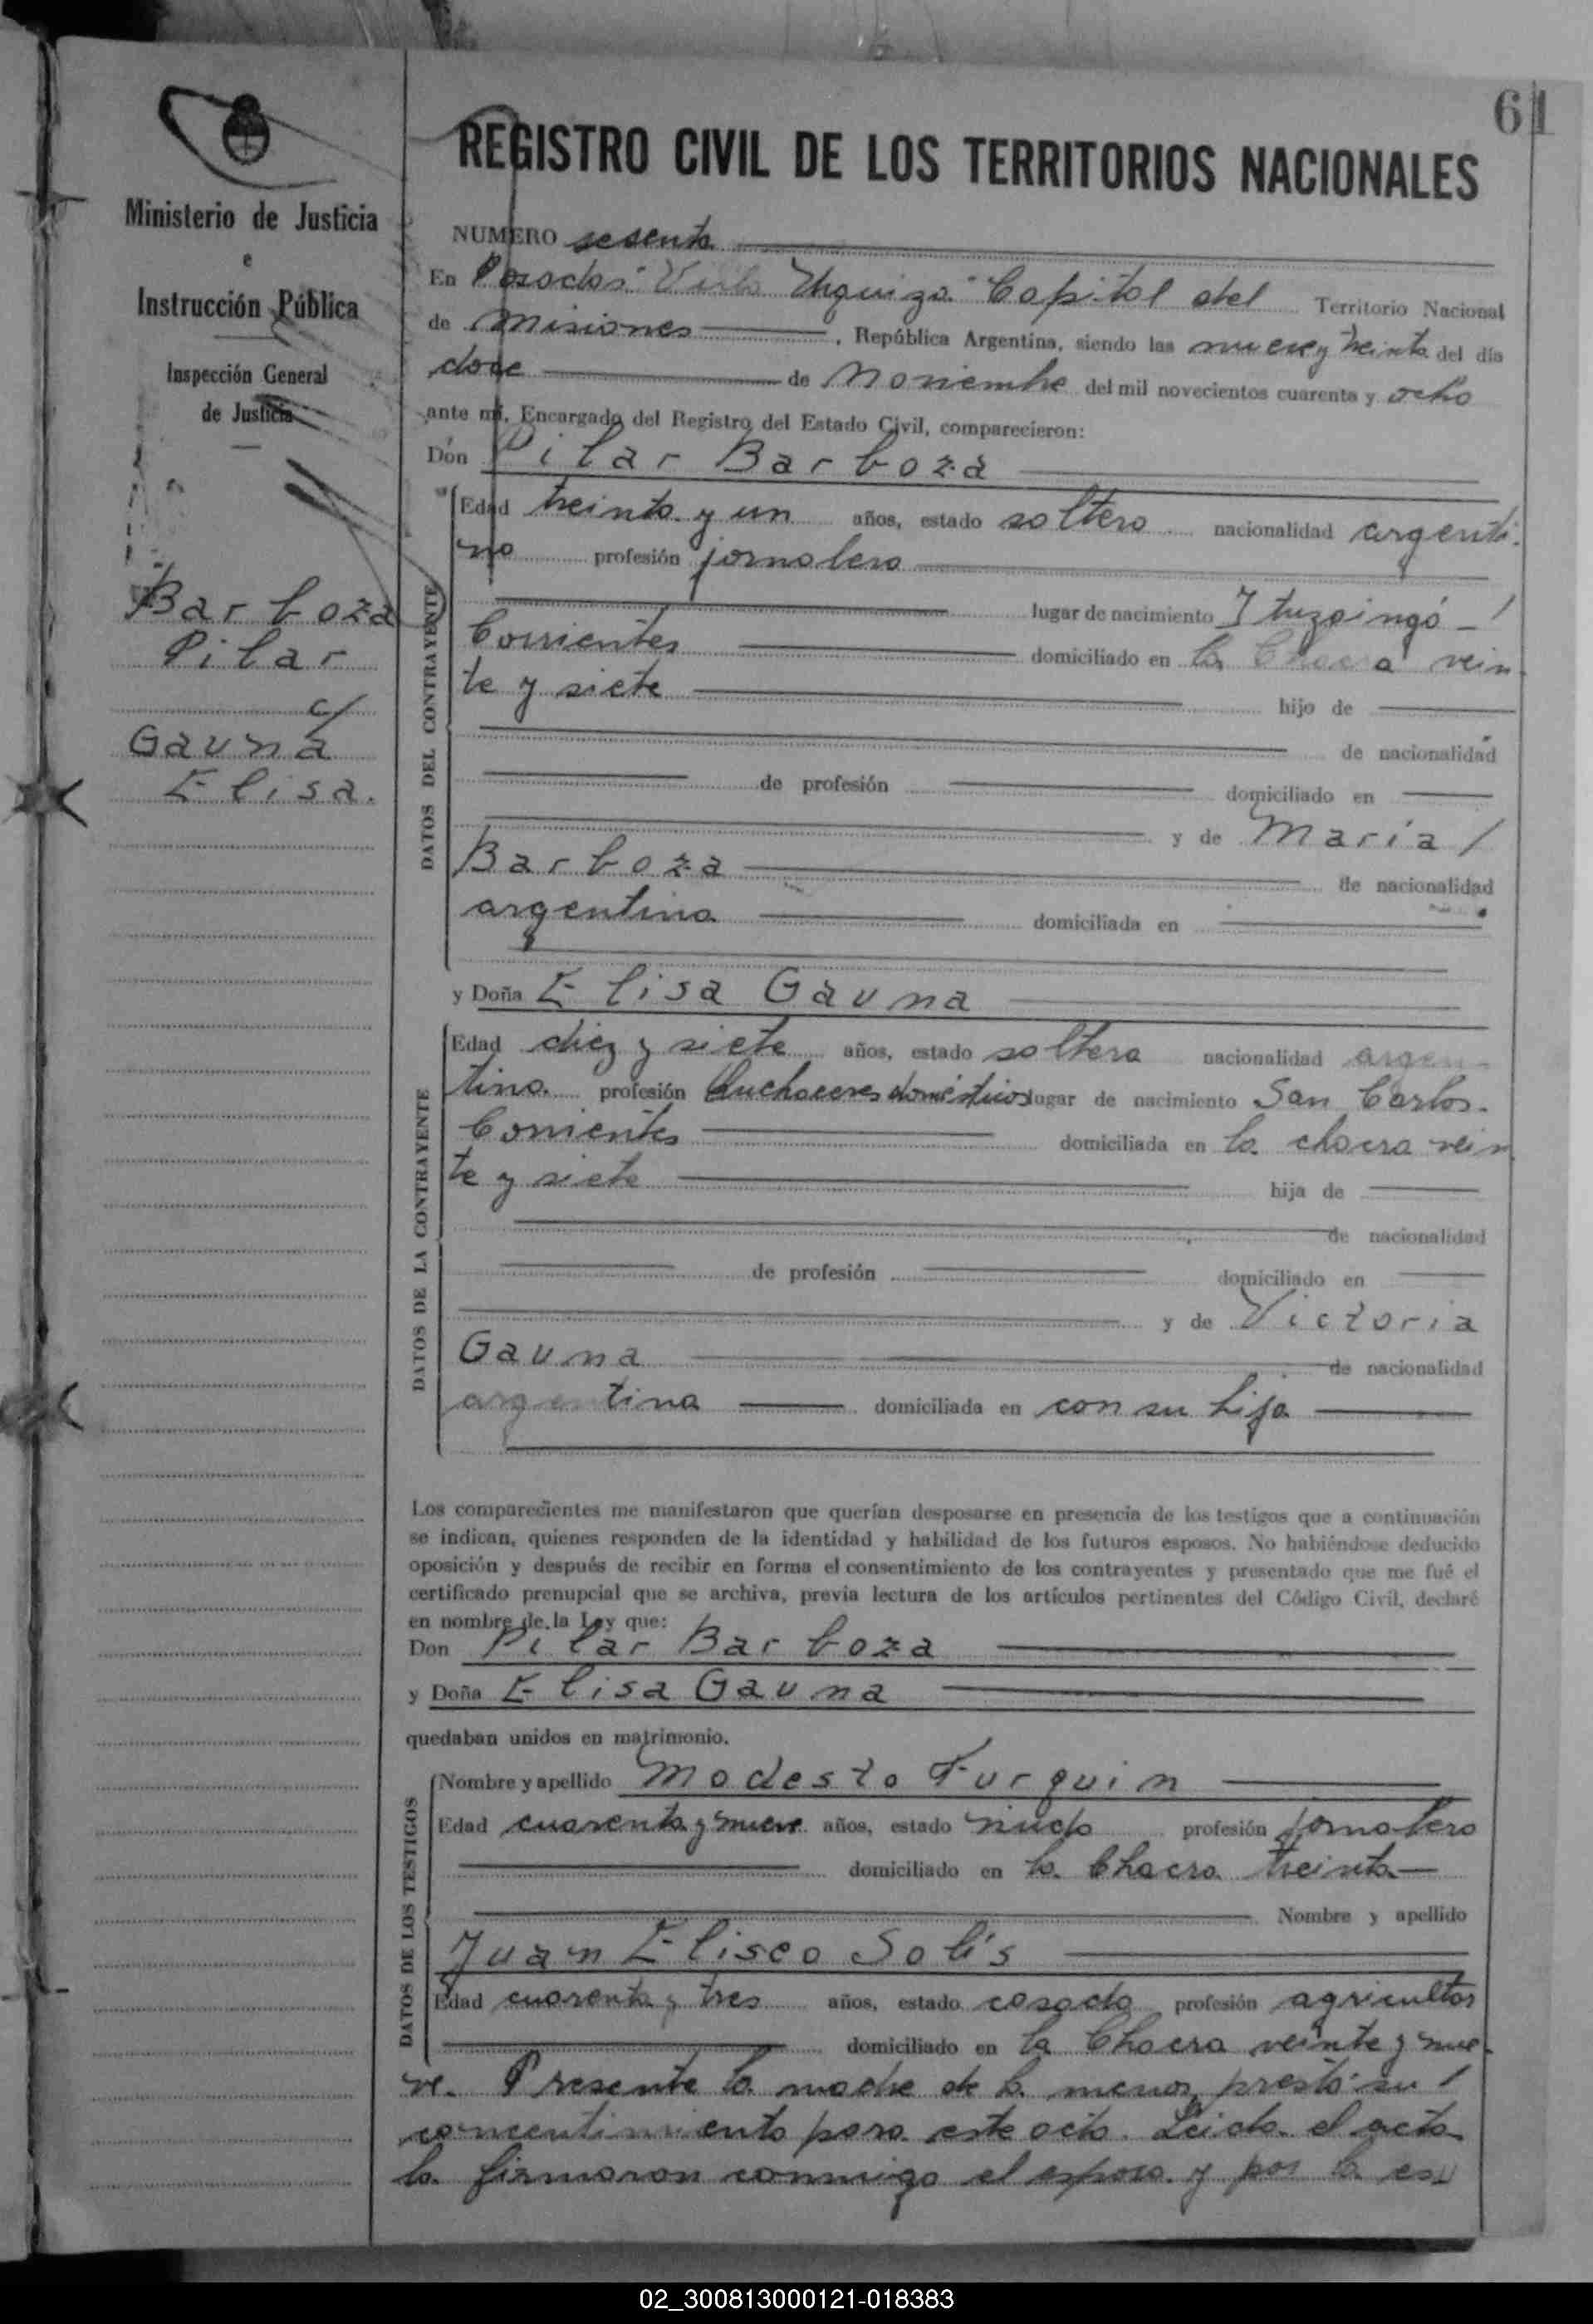 61
Ministerio de Justicia
e
Instrucción Pública
Inspección General
de Justicia
Barboza
Pilar
c/
Gauna
Elisa.
REGISTRO CIVIL DE LOS TERRITORIOS NACIONALES
NUMERO sesenta
En Posadas "Villa Urquiza" Capital del Territorio Nacional
de Misiones, República Argentina, siendo las nueve y treinta del día
doce de Noviembre del mil novecientos cuarenta y ocho
ante mí, Encargado del Registro del Estado Civil, comparecieron:
Don Pilar Barboza
DATOS DEL CONTRAYENTE
Edad treinta y un años, estado soltero nacionalidad argenti-
no profesión jornalero
lugar de nacimiento Ituzaingó -
Corrientes domiciliado en la Chacra vein
te y siete hijo de
de nacionalidad
de profesión domiciliado en
y de María /
Barboza de nacionalidad
argentina domiciliada en
y Doña Elisa Gauna
DATOS DE LA CONTRAYENTE
Edad diez y siete años, estado soltera nacionalidad argen-
tina profesión Quehaceres domésticos lugar de nacimiento San Carlos-
Corrientes domiciliada en la chacra vein
te y siete hija de
de nacionalidad
de profesión domiciliado en
y de Victoria
Gauna de nacionalidad
argentina domiciliada en con su hija
Los comparecientes me manifestaron que querían desposarse en presencia de los testigos que a continuación
se indican, quienes responden de la identidad y habilidad de los futuros esposos. No habiéndose deducido
oposición y después de recibir en forma el consentimiento de los contrayentes y presentado que me fué el
certificado prenupcial que se archiva, previa lectura de los artículos pertinentes del Código Civil, declaré
en nombre de la Ley que:
Don Pilar Barboza
y Doña Elisa Gauna
quedaban unidos en matrimonio.
DATOS DE LOS TESTIGOS
Nombre y apellido Modesto Furquin
Edad cuarenta y nueve años, estado viudo profesión jornalero
domiciliado en la Chacra treinta
Nombre y apellido
Juan Eliseo Solís
Edad cuarenta y tres años, estado casado profesión agricultor
domiciliado en la Chacra veinte y nue-
ve. Presente la madre de la menor, prestó su /
consentimiento para este acto. Leída el acta
la firmaron conmigo el esposo y por la es
02_300813000121-018383